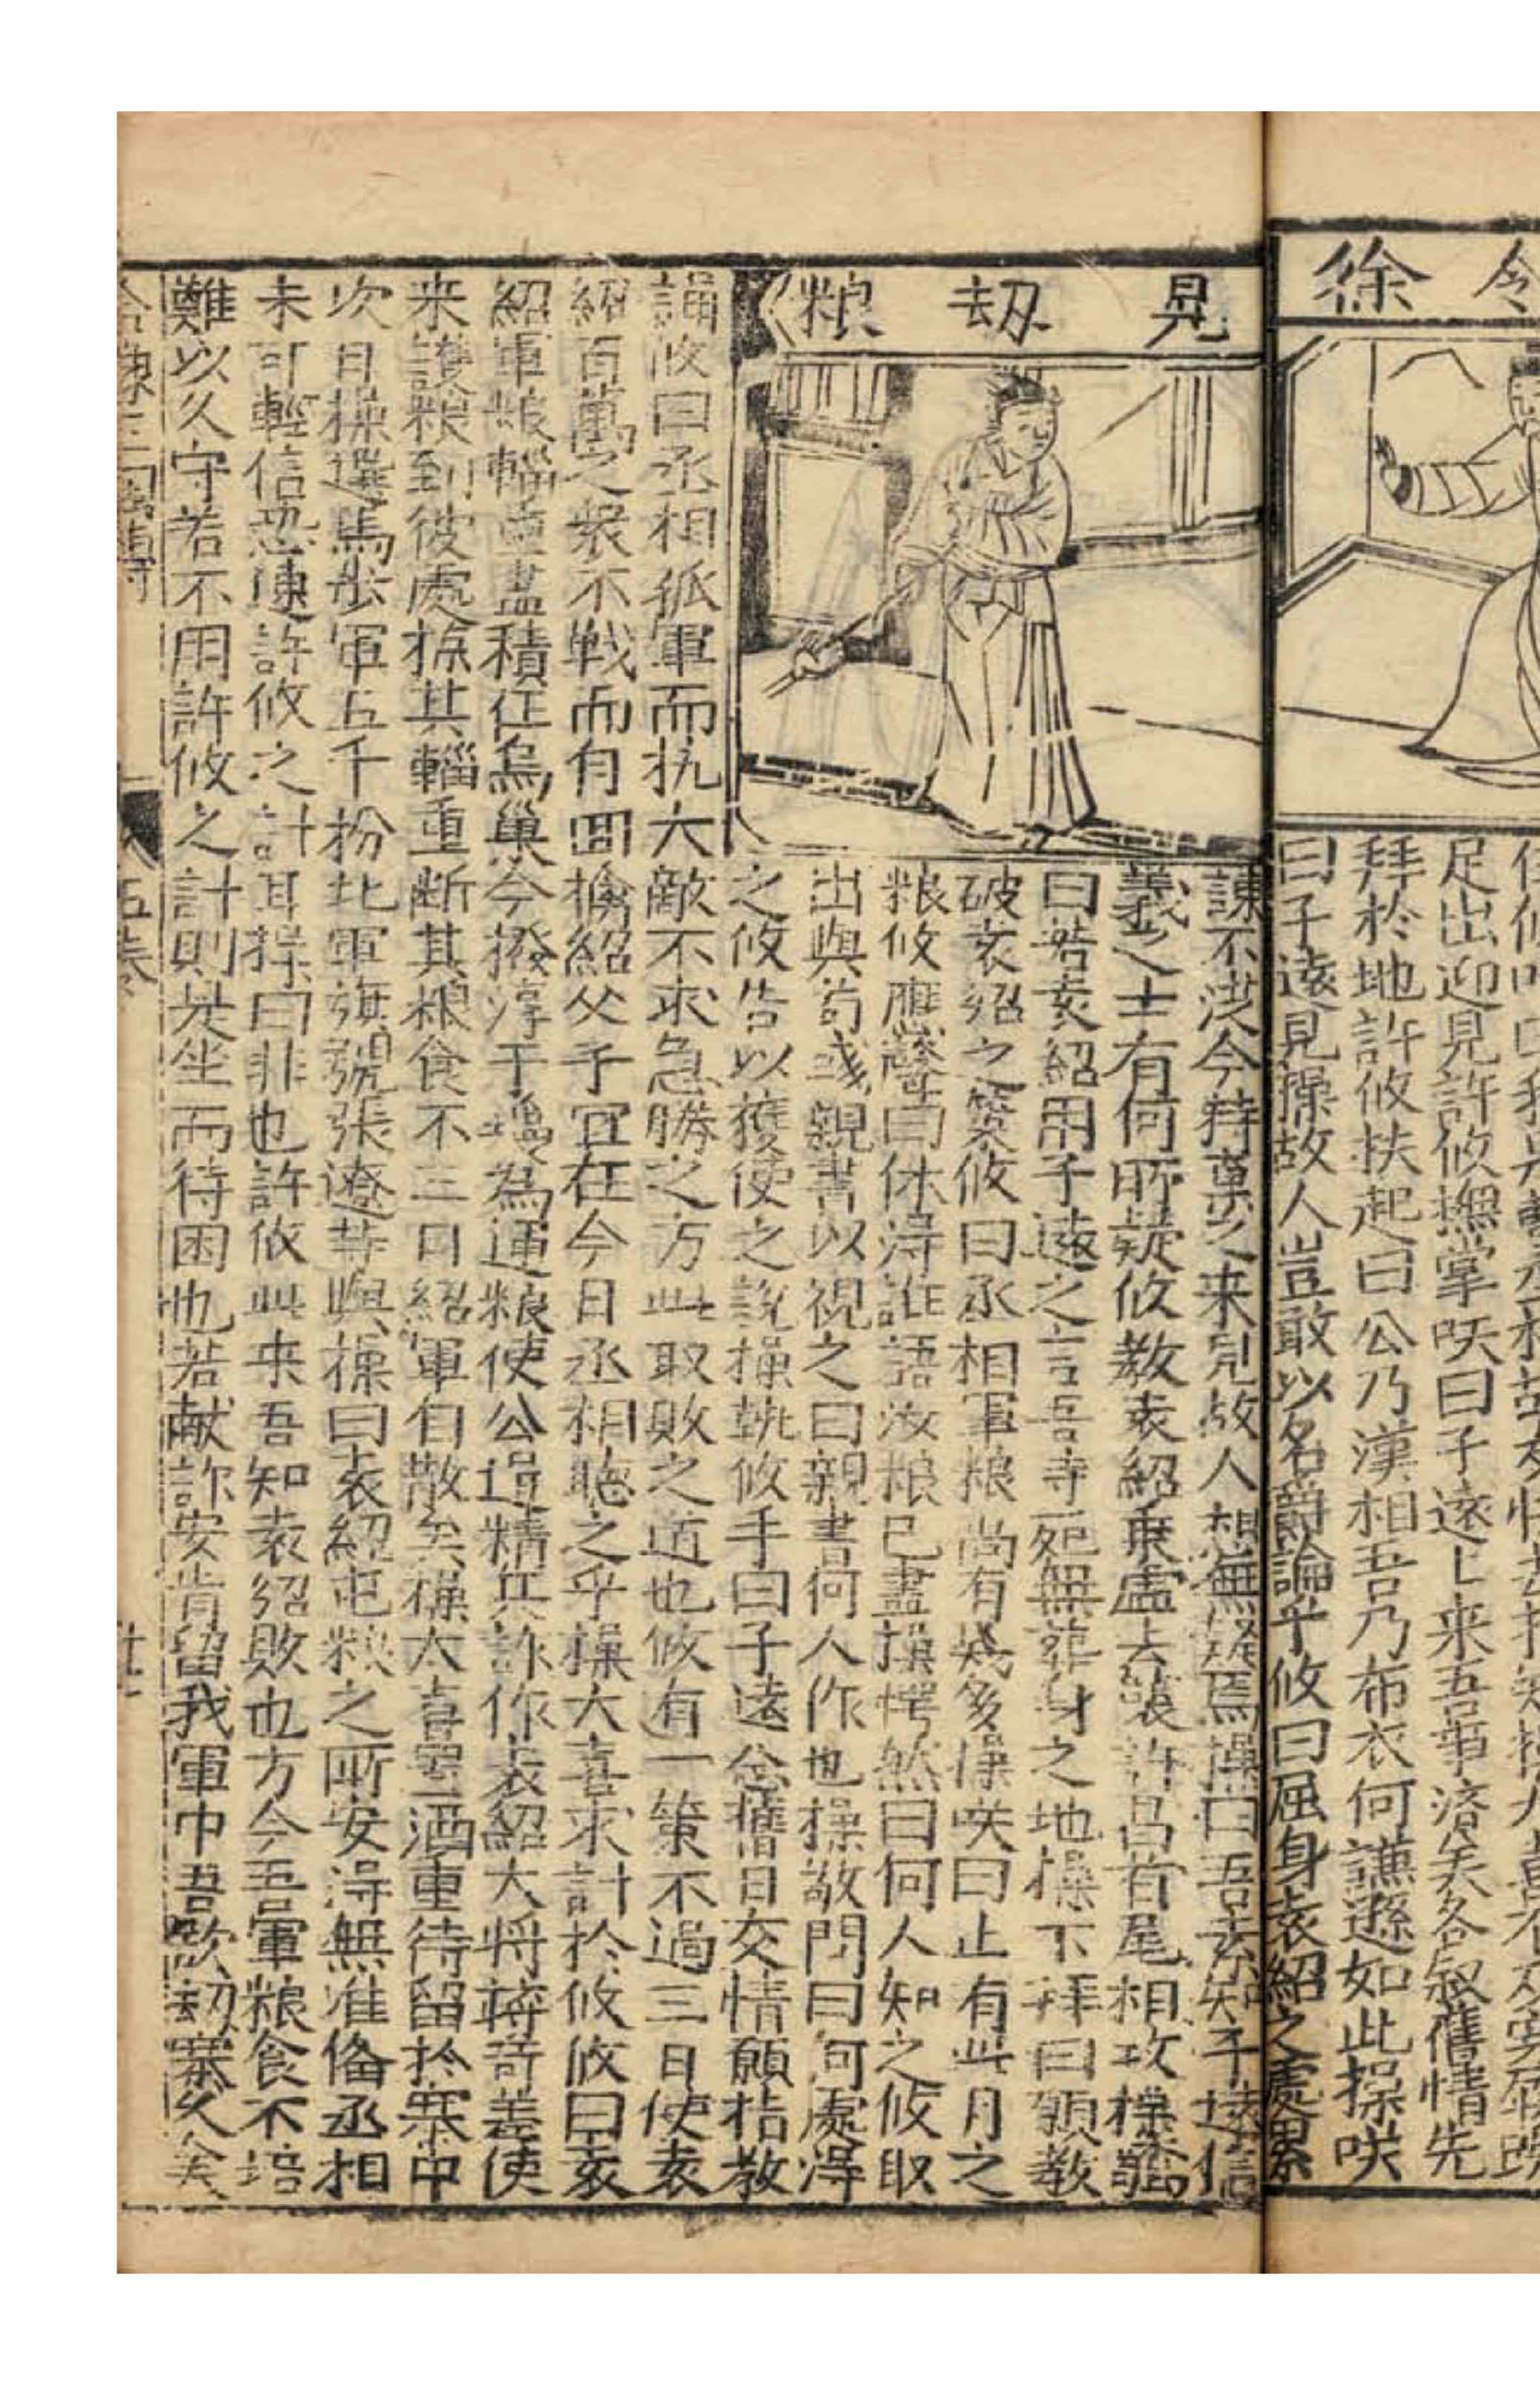 令徐
足出迎見許攸撫掌咲曰子遠乚来吾事済矣各叙舊情先
拜於地許攸扶起曰公乃漢相吾乃布衣何謙遜如此操咲
曰子遠見操故人豈敢以名爵論乎攸曰屈身袁紹之處累
見刼粮
諌不従今持菓之来見故人想無疑焉操曰吾素知子遠信
義之士有何所疑攸教袁紹乗虚去襲許昌首尾相攻操驚
曰若袁紹用子遠之言吾寺死無葬身之地操下拜曰願教
破袁紹之策攸曰丞相軍粮尚有幾多操咲曰止有此月之
粮攸應聲曰休得誑語汝粮已盡操愕然曰何人知之攸取
出與荀彧親書以視之曰親書何人作也操敬問曰何處得
之攸告以獲使之說操執攸手曰子遠念舊日交情願桔教
誨攸曰丞相孤軍而抗大敵不求急勝之方此取敗之道也攸有一策不過三日使袁
紹百萬之衆不戦而有囬擒紹父子宜在今日丞相聴之乎操大喜求計於攸攸曰袁
紹軍粮輜重盡積在烏巢今撥淳于瓊為運粮使公選精兵詐作袁紹大将蒋奇差使
来護粮到彼處掠其輜重断其粮食不三日紹軍自散矣操大喜置酒重待留於寨中
次日操選馬步軍五千扮北軍旗號張遼等與操曰袁紹屯粮之所安得無准俻丞相
未可輕信恐連許攸之計耳操曰非也許攸此来吾知袁紹敗也方今吾軍粮食不培
難以久守若不用許攸之計則是坐而待困也若献詐安肯留我軍中吾欲刼寨久矣
五巻